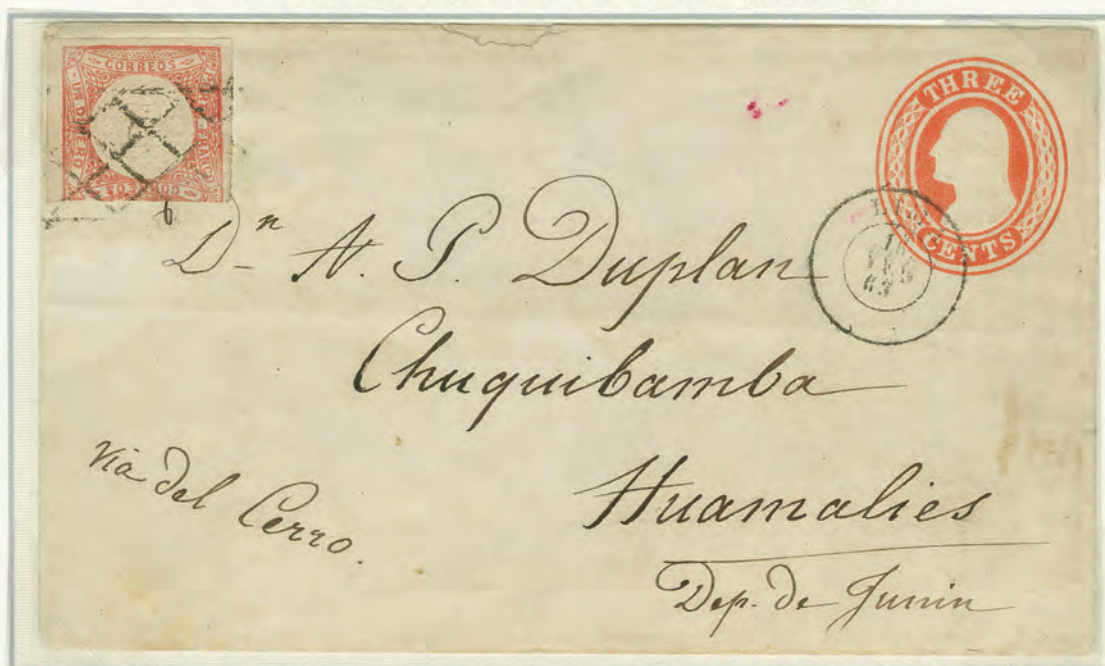 CORREOS
UN DINERO
PORTE FRANCO
6
THREE
CENTS
Dn N. P. Duplan
Chuquibamba
Huamalies
Dep. de Junin
via del Cerro.